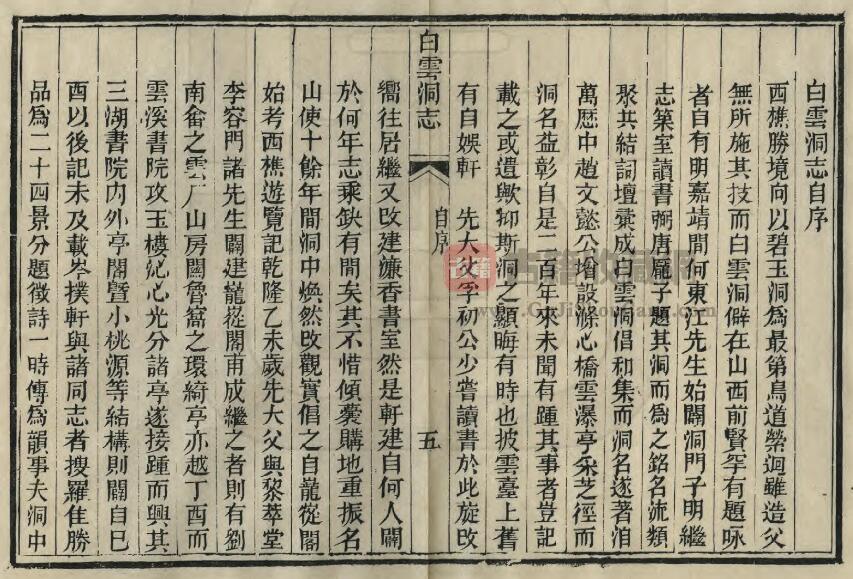 白雲洞志自序
西樵勝境向以碧玉洞為最第鳥道縈迴雖造父
無所施其技而白雲洞僻在山西前賢罕有題咏
者自有明嘉靖間何東江先生始闢洞門子明繼
志築室讀書弼唐龐子題其洞而為之銘名流類
聚共結詞壇彙成白雲洞倡和集而洞名遂著洎
萬歷中趙文懿公增設滌心橋雲瀑亭采芝徑而
洞名益彰自是二百年來未聞有踵其事者豈記
載之或遺歟抑斯洞之顯晦有時也披雲臺上舊
有自娛軒　先大父孚初公少嘗讀書於此旋改
白雲洞志
自序
五
嚮往居繼又改建濂香書室然是軒建自何人闢
於何年志乘缺有間矣其不惜傾囊購地重振名
山使十餘年間洞中煥然改觀實倡之自龍從閣
始考西樵遊覽記乾隆乙未歲先大父與黎萃堂
李容門諸先生闢建龍從閣甫成繼之者則有劉
南畬之雲厂山房關魯窩之環綺亭亦越丁酉而
雲溪書院攻玉樓沁心光分諸亭遂接踵而興其
三湖書院內外亭閣暨小桃源等結構則闢自己
酉以後記未及載岑撲軒與諸同志者搜羅佳勝
品為二十四景分題徵詩一時傳為韻事夫洞中